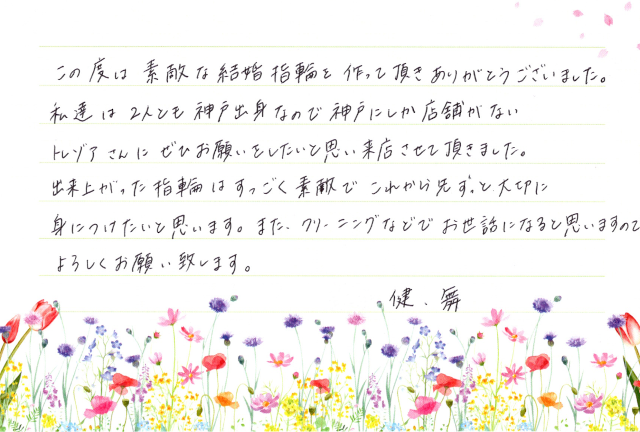 この度は 素敵な結婚指輪を 作って頂きありがとうございました。
私達は2人とも神戸出身なので神戸にしか店舗がない
トレゾアさんに ぜひお願いをしたいと思い来店させて頂きました。
出来上がった指輪はすっごく素敵で これから先ずっと大切に
身につけたいと思います。また、クリーニングなどで お世話になると思いますので
よろしくお願い致します。
健、舞